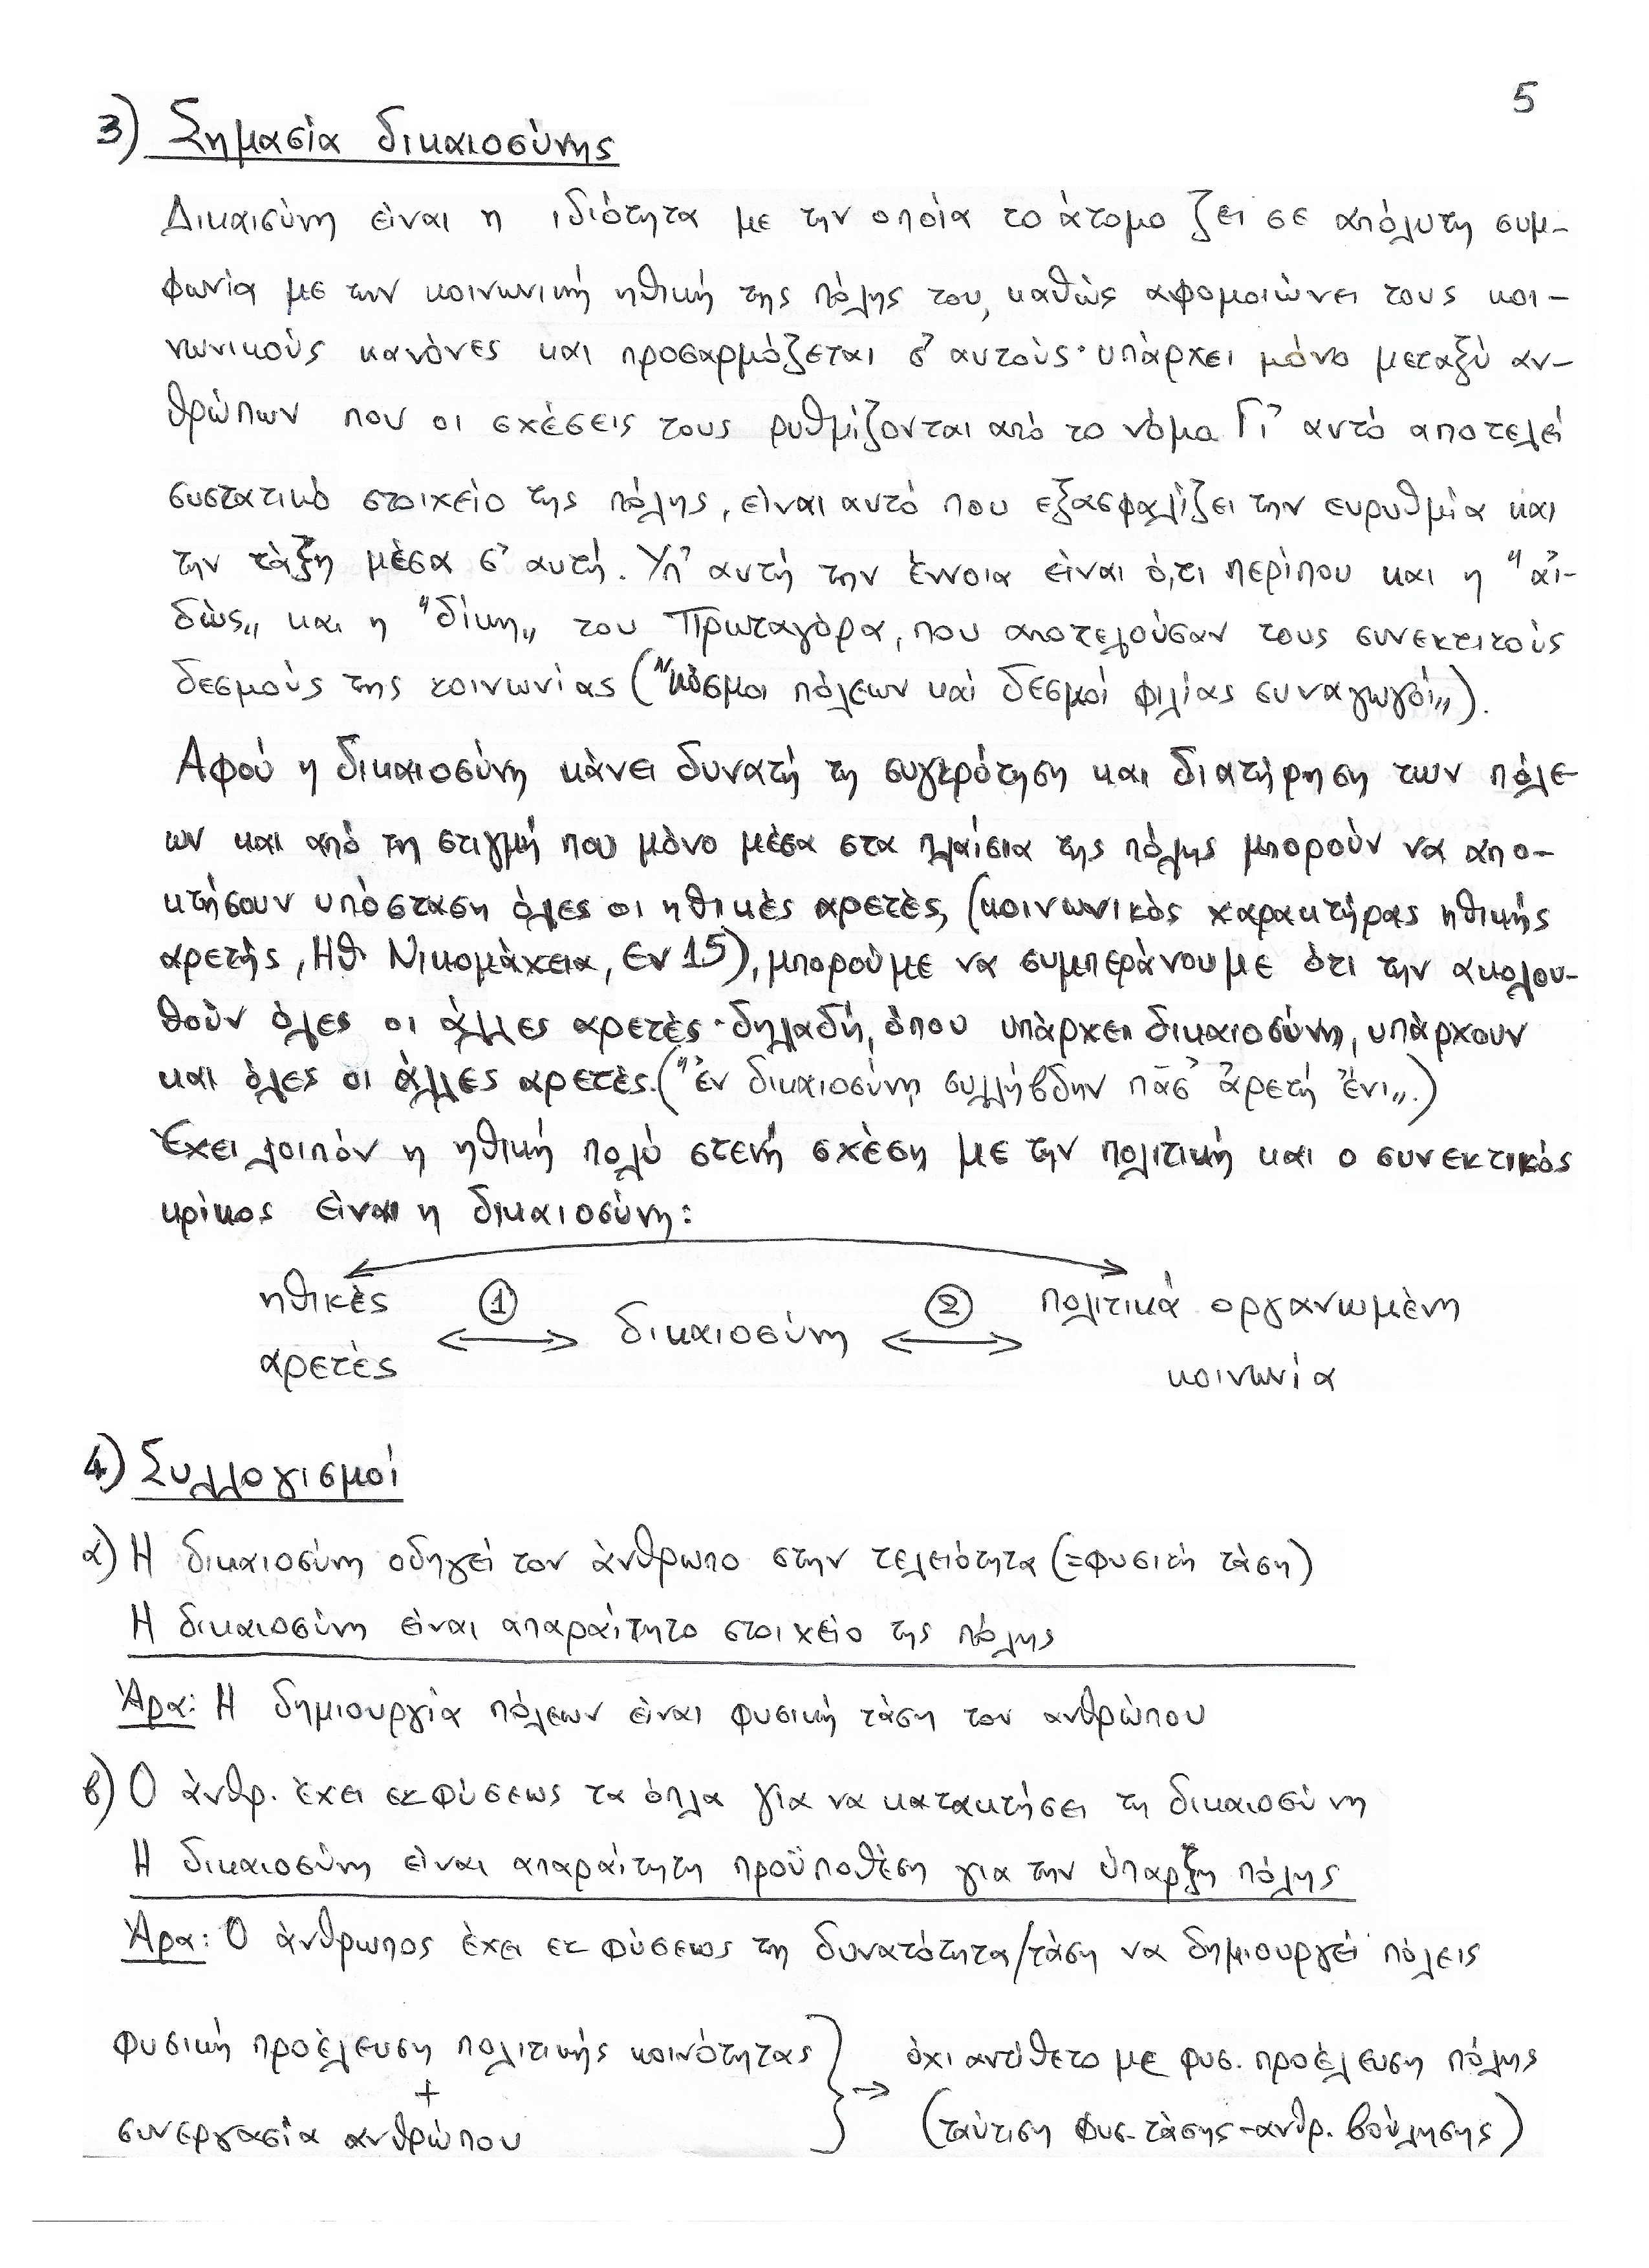 5
3) Σημασία δικαιοσύνης
Δικαισύνη είναι η ιδιότητα με την οποία το άτομο ζει σε απόλυτη συμ-
φωνία με την κοινωνική ηθική της πόλης του, καθώς αφομοιώνει τους κοι-
νωνικούς κανόνες και προσαρμόζεται σ' αυτούς· υπάρχει μόνο μεταξύ αν-
θρώπων που οι σχέσεις τους ρυθμίζονται από το νόμο. Γι' αυτό αποτελεί
συστατικό στοιχείο της πόλης, είναι αυτό που εξασφαλίζει την ευρυθμία και
την τάξη μέσα σ' αυτή. Υπ' αυτή την έννοια είναι ό,τι περίπου και η "αἰ-
δώς„ και η "δίκη„ του Πρωταγόρα, που αποτελούσαν τους συνεκτικούς
δεσμούς της κοινωνίας ("κόσμοι πόλεων και δεσμοί φιλίας συναγωγοί„).
Αφού η δικαιοσύνη κάνει δυνατή τη συγκρότηση και διατήρηση των πόλε-
ων και από τη στιγμή που μόνο μέσα στα πλαίσια της πόλης μπορούν να απο-
κτήσουν υπόσταση όλες οι ηθικές αρετές, (κοινωνικός χαρακτήρας ηθικής
αρετής, Ηθ. Νικομάχεια, Εν 15), μπορούμε να συμπεράνουμε ότι την ακολου-
θούν όλες οι άλλες αρετές· δηλαδή, όπου υπάρχει δικαιοσύνη, υπάρχουν
και όλες οι άλλες αρετές. ("ἐν δικαιοσύνῃ συλλήβδην πᾶσ' ἀρετή ἔνι„.)
Έχει λοιπόν η ηθική πολύ στενή σχέση με την πολιτική και ο συνεκτικός
κρίκος είναι η δικαιοσύνη:
ηθικές ① δικαιοσύνη ② πολιτικά οργανωμένη
αρετές κοινωνία
4) Συλλογισμοί
α) Η δικαιοσύνη οδηγεί τον άνθρωπο στην τελειότητα (=φυσική τάση)
Η δικαιοσύνη είναι απαραίτητο στοιχείο της πόλης
Άρα: Η δημιουργία πόλεων είναι φυσική τάση του ανθρώπου
β) Ο άνθρ. έχει εκ φύσεως τα όπλα για να κατακτήσει τη δικαιοσύνη
Η δικαιοσύνη είναι απαραίτητη προϋπόθεση για την ύπαρξη πόλης
Άρα: Ο άνθρωπος έχει εκ φύσεως τη δυνατότητα/τάση να δημιουργεί πόλεις
φυσική προέλευση πολιτικής κοινότητας } → όχι αντίθετο με φυσ. προέλευση πόλης
+
συνεργασία ανθρώπου (ταύτιση φυσ. τάσης - ανθρ. βούλησης)